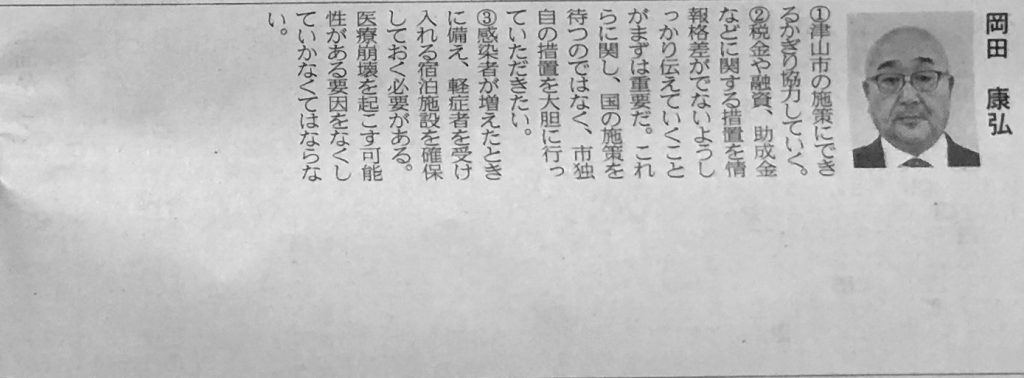 岡田 康弘
①津山市の施策にでき
るかぎり協力していく。
②税金や融資、助成金
などに関する措置を情
報格差がでないようし
っかり伝えていくこと
がまずは重要だ。これ
らに関し、国の施策を
待つのではなく、市独
自の措置を大胆に行っ
ていただきたい。
③感染者が増えたとき
に備え、軽症者を受け
入れる宿泊施設を確保
しておく必要がある。
医療崩壊を起こす可能
性がある要因をなくし
ていかなくてはならな
い。